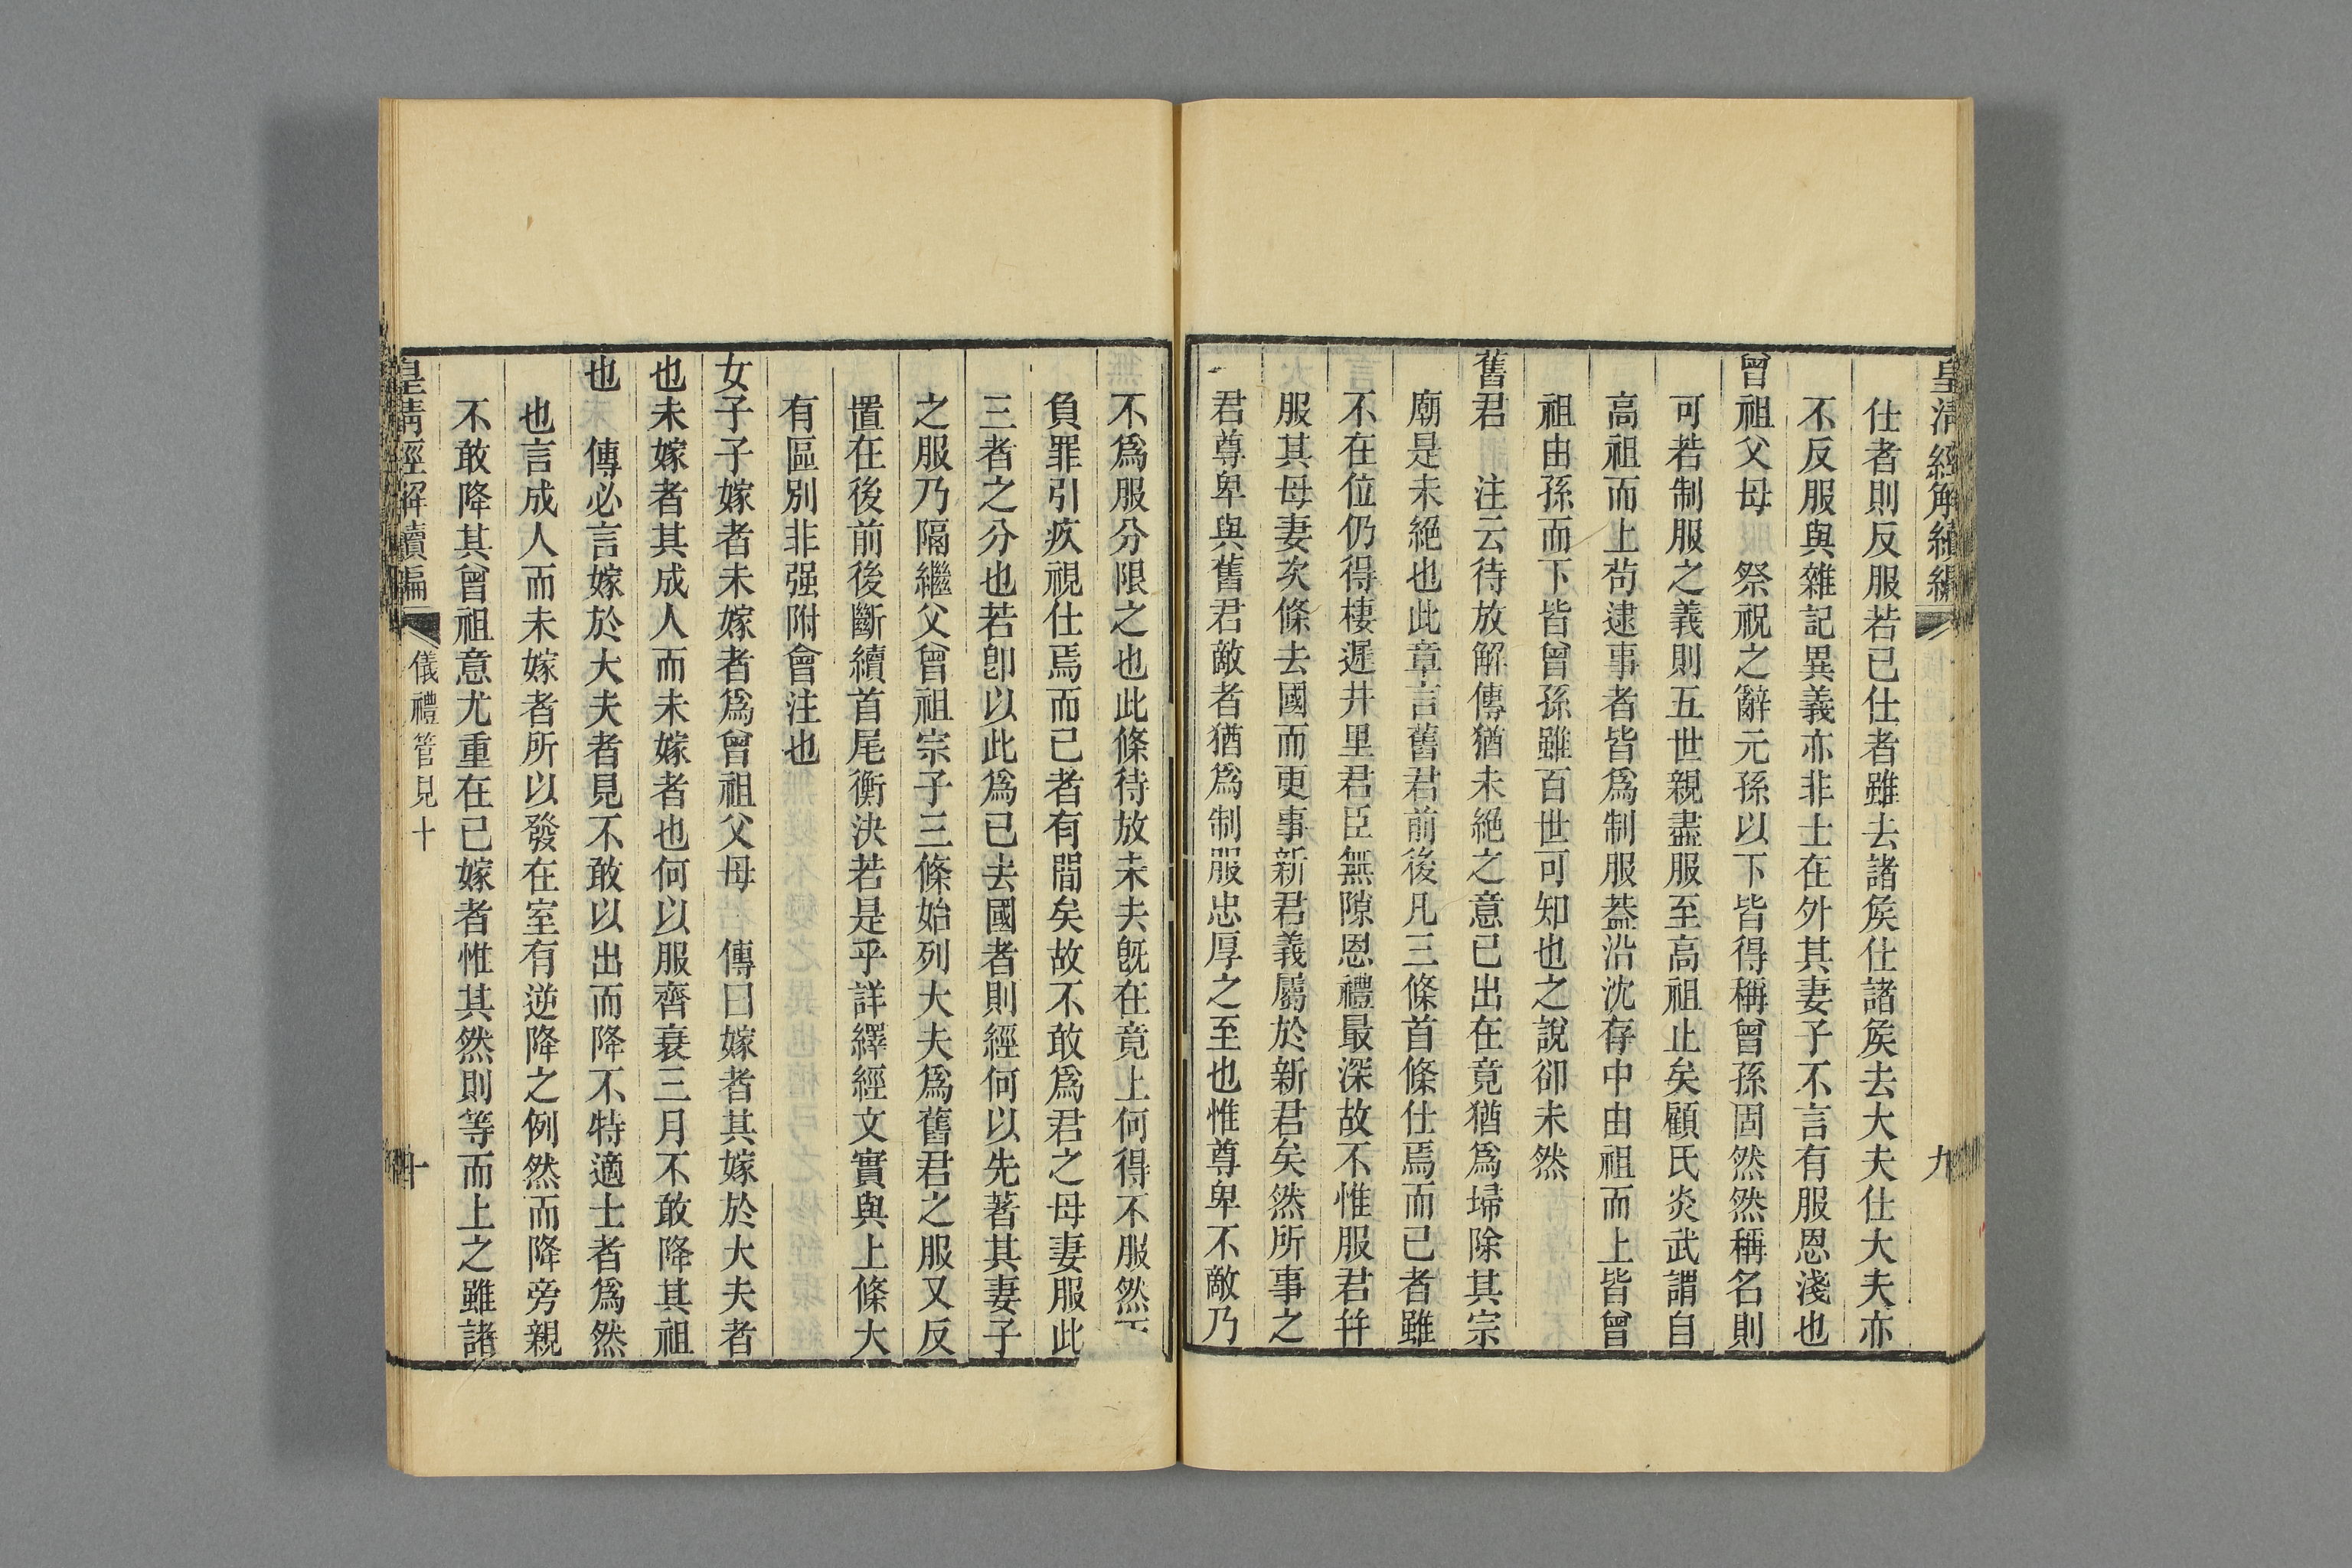 皇清經解續編
九
仕者則反服若已仕者雖去諸矦仕諸矦去大夫仕大夫亦
不反服與雜記異義亦非士在外其妻子不言有服恩淺也
曾祖父母　祭祝之辭元孫以下皆得稱曾孫固然然稱名則
可若制服之義則五世親盡服至高祖止矣顧氏炎武謂自
高祖而上茍逮事者皆爲制服葢沿沈存中由祖而上皆曾
祖由孫而下皆曾孫雖百世可知也之說卻未然
舊君　注云待放解傳猶未絶之意已出在竟猶爲埽除其宗
廟是未絶也此章言舊君前後凡三條首條仕焉而已者雖
不在位仍得棲遲井里君臣無隙恩禮最深故不惟服君并
服其母妻次條去國而更事新君義屬於新君矣然所事之
君尊卑與舊君敵者猶爲制服忠厚之至也惟尊卑不敵乃
不爲服分限之也此條待放未去旣在竟上何得不服然
負罪引疚視仕焉而已者有閒矣故不敢爲君之母妻服此
三者之分也若卽以此爲已去國者則經何以先著其妻子
之服乃隔繼父曾祖宗子三條始列大夫爲舊君之服又反
置在後前後斷續首尾衡決若是乎詳繹經文實與上條大
有區別非强附會注也
女子子嫁者未嫁者爲曾祖父母　傳曰嫁者其嫁於大夫者
也未嫁者其成人而未嫁者也何以服齊衰三月不敢降其祖
也　傳必言嫁於大夫者見不敢以出而降不特適士者爲然
也言成人而未嫁者所以發在室有逆降之例然而降旁親
不敢降其曾祖意尤重在已嫁者惟其然則等而上之雖諸
皇清經解續編
儀禮管見十
十